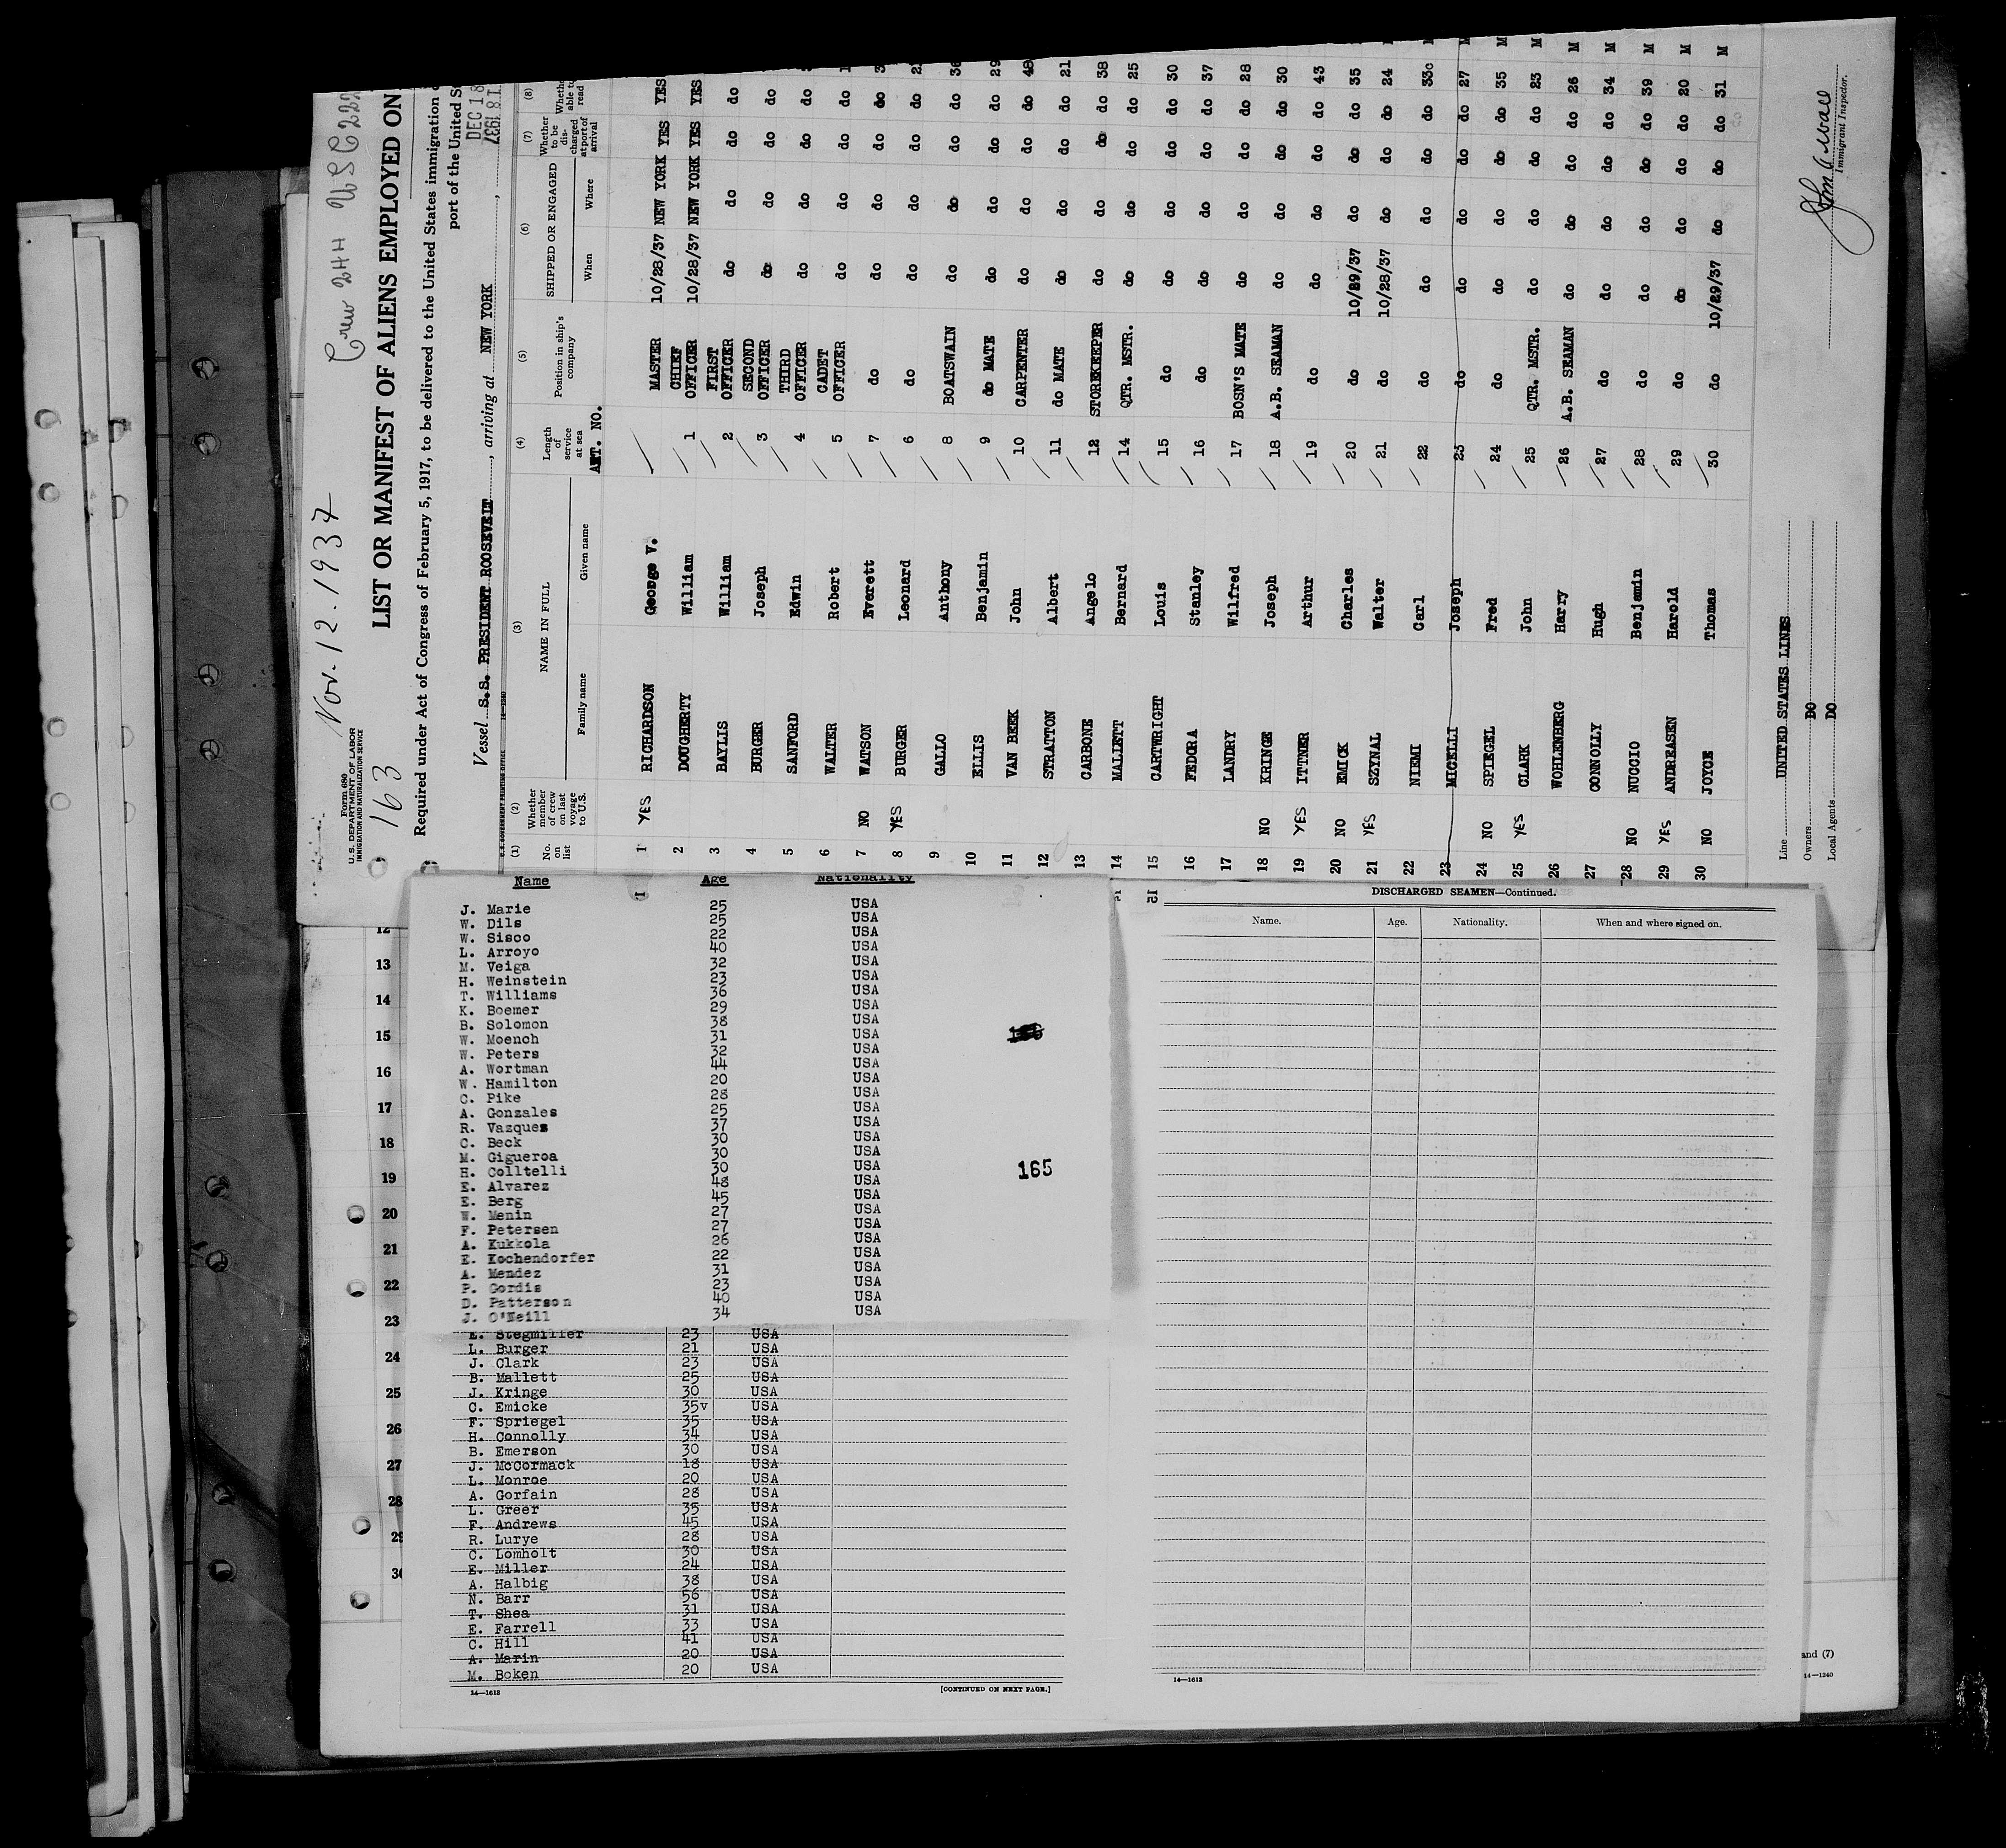 Nov. 12. 1937
Crew 244 USC 222
Form 680
U.S. DEPARTMENT OF LABOR
IMMIGRATION AND NATURALIZATION SERVICE
163
LIST OR MANIFEST OF ALIENS EMPLOYED ON
Required under Act of Congress of February 5, 1917, to be delivered to the United States immigration
port of the United St
DEC 18
1937
Vessel S.S. PRESIDENT ROOSEVELT, arriving at NEW YORK
U.S. GOVERNMENT PRINTING OFFICE 14—1240
(1) (2) (3) (4) (5) (6) (7) (8)
No. on list
Whether member of crew on last voyage to U.S.
NAME IN FULL
Family name Given name
Length of service at sea
ART. NO.
Position in ship's company
SHIPPED OR ENGAGED
When Where
Whether to be discharged at port of arrival
Whether able to read
1 YES RICHARDSON George V. MASTER 10/28/37 NEW YORK YES YES
2 DOUGHERTY William 1 CHIEF OFFICER 10/28/37 NEW YORK YES YES
3 BAYLIS William 2 FIRST OFFICER do do do do
4 BURGER Joseph 3 SECOND OFFICER do do do do
5 SANFORD Edwin 4 THIRD OFFICER do do do do
6 WALTER Robert 5 CADET OFFICER do do do do
7 NO WATSON Everett 7 do do do do do
8 YES BURGER Leonard 6 do do do do do
9 GALLO Anthony 8 BOATSWAIN do do do do 36
10 ELLIS Benjamin 9 do MATE do do do do 29
11 VAN BEEK John 10 CARPENTER do do do do 48
12 STRATTON Albert 11 do MATE do do do do 21
13 CARBONE Angelo 12 STOREKEEPER do do do do 38
14 MALLETT Bernard 14 QTR. MSTR. do do do do 25
15 CARTWRIGHT Louis 15 do do do do do 30
16 FEDORA Stanley 16 do do do do do 37
17 LANDRY Wilfred 17 BOSN'S MATE do do do do 28
18 NO KRINGE Joseph 18 A.B. SEAMAN do do do do 30
19 YES ITTNER Arthur 19 do do do do do 43
20 NO EMICK Charles 20 do 10/29/37 do do do 35
21 YES SZYNAL Walter 21 do 10/28/37 do do do 24
22 NIEMI Carl 22 do do do do do 33
23 MICELLI Joseph 23 do do do do do 27 M
24 NO SPIEGEL Fred 24 do do do do do 35 M
25 YES CLARK John 25 QTR. MSTR. do do do do 23 M
26 WOHLENBERG Harry 26 A.B. SEAMAN do do do do 26 M
27 CONNOLLY Hugh 27 do do do do do 34 M
28 NO NUCCIO Benjamin 28 do do do do do 39 M
29 YES ANDREASEN Harold 29 do do do do do 20 M
30 NO JOYCE Thomas 30 do 10/29/37 do do do 31 M
Line UNITED STATES LINES
Owners DO
Local Agents DO
Immigrant Inspector.
Name Age Nationality
J. Marie 25 USA
W. Dils 25 USA
W. Sisco 22 USA
L. Arroyo 40 USA
M. Veiga 32 USA
H. Weinstein 23 USA
T. Williams 36 USA
K. Boemer 29 USA
B. Solomon 38 USA
W. Moench 31 USA
W. Peters 32 USA
A. Wortman 44 USA
W. Hamilton 20 USA
C. Pike 28 USA
A. Gonzales 25 USA
R. Vazques 37 USA
C. Beck 30 USA
M. Gigueroa 30 USA
H. Colltelli 30 USA
E. Alvarez 48 USA
E. Berg 45 USA
W. Menin 27 USA
F. Petersen 27 USA
A. Kukkola 26 USA
E. Kochendorfer 22 USA
A. Mendez 31 USA
P. Gordis 23 USA
D. Patterson 40 USA
J. O'Neill 34 USA
165
E. Stegmiller 23 USA
L. Burger 21 USA
J. Clark 23 USA
B. Mallett 25 USA
J. Kringe 30 USA
C. Emicke 35v USA
F. Spriegel 35 USA
H. Connolly 34 USA
B. Emerson 30 USA
J. McCormack 18 USA
L. Monroe 20 USA
A. Gorfain 28 USA
L. Greer 35 USA
F. Andrews 45 USA
R. Lurye 28 USA
C. Lomholt 30 USA
E. Miller 24 USA
A. Halbig 38 USA
N. Barr 56 USA
T. Shea 31 USA
E. Farrell 33 USA
C. Hill 41 USA
A. Marin 20 USA
M. Boken 20 USA
14—1613
[CONTINUED ON NEXT PAGE.]
DISCHARGED SEAMEN—Continued.
Name. Age. Nationality. When and where signed on.
14—1613
12
13
14
15
16
17
18
19
20
21
22
23
24
25
26
27
28
29
30
and (7)
14—1240